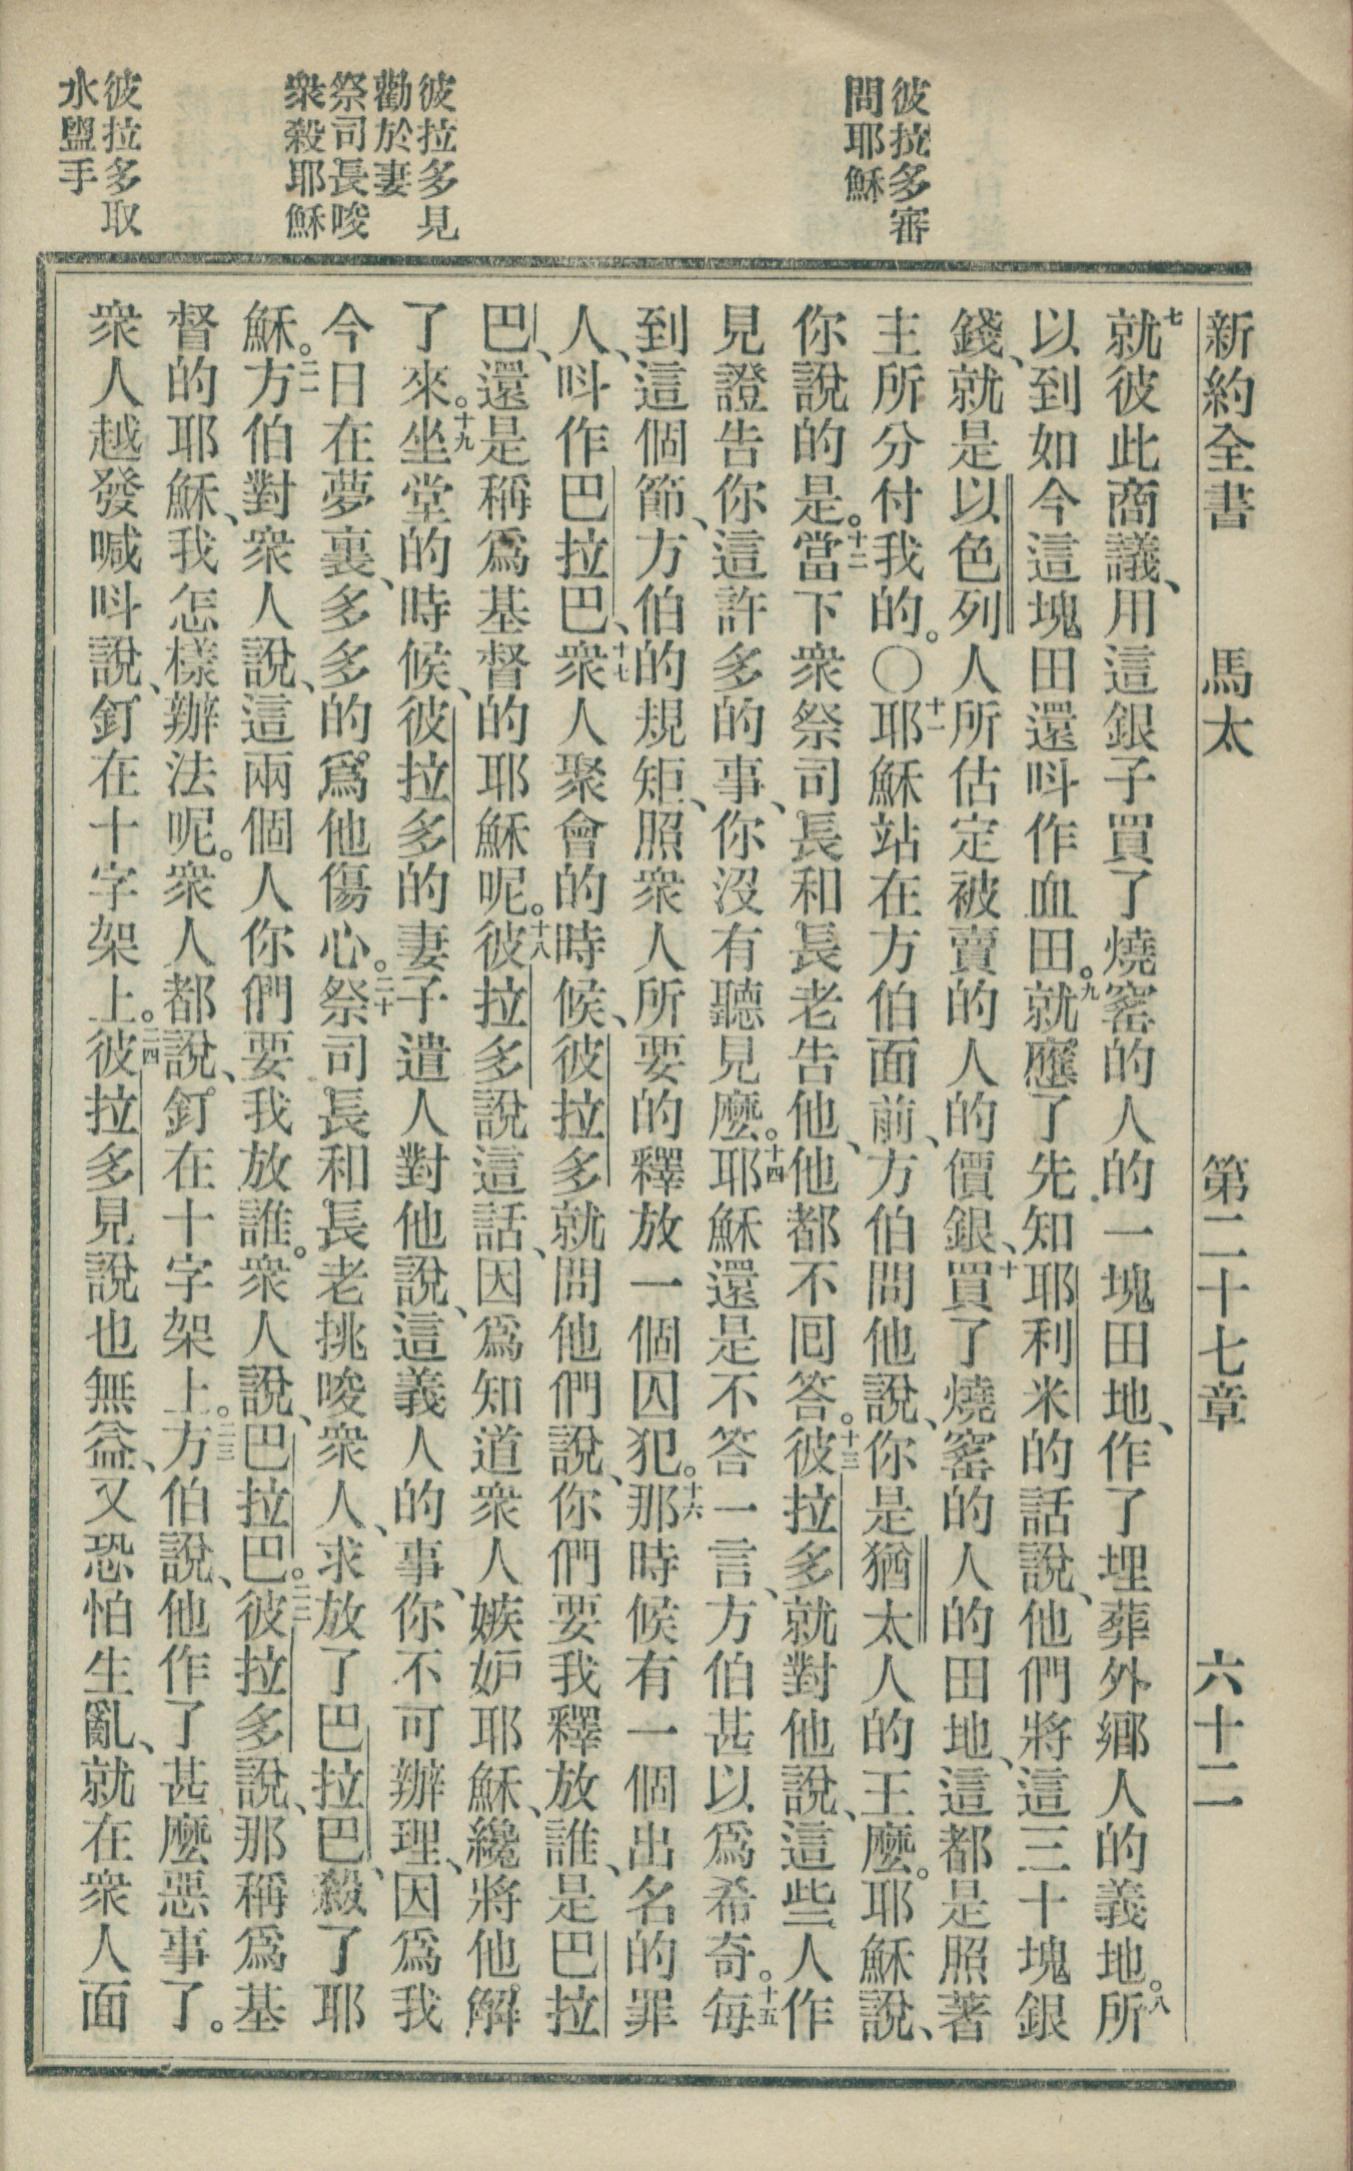 新約全書 馬太 第二十七章 六十二
彼拉多審
問耶穌
彼拉多見
勸於妻
祭司長唆
衆殺耶穌
彼拉多取
水盥手
七就彼此商議、用這銀子買了燒窰的人的一塊田地、作了埋葬外鄉人的義地。八所
以到如今這塊田還呌作血田。九就應了先知耶利米的話說、他們將這三十塊銀
錢、就是以色列人所估定被賣的人的價銀、十買了燒窰的人的田地、這都是照著
主所分付我的。〇十一耶穌站在方伯面前、方伯問他說、你是猶太人的王麼。耶穌說、
你說的是。十二當下衆祭司長和長老告他、他都不回答。十三彼拉多就對他說、這些人作
見證告你這許多的事、你沒有聽見麼。十四耶穌還是不答一言、方伯甚以爲希奇。十五每
到這個節、方伯的規矩、照衆人所要的釋放一個囚犯。十六那時候有一個出名的罪
人、呌作巴拉巴、十七衆人聚會的時候、彼拉多就問他們說、你們要我釋放誰、是巴拉
巴、還是稱爲基督的耶穌呢。十八彼拉多說這話、因爲知道衆人嫉妒耶穌、纔將他解
了來。十九坐堂的時候、彼拉多的妻子遣人對他說、這義人的事、你不可辦理、因爲我
今日在夢裏、多多的爲他傷心。二十祭司長和長老挑唆衆人、求放了巴拉巴、殺了耶
穌。二一方伯對衆人說、這兩個人你們要我放誰。衆人說、巴拉巴。二二彼拉多說、那稱爲基
督的耶穌、我怎樣辦法呢。衆人都說、釘在十字架上。二三方伯說、他作了甚麼惡事了。
衆人越發喊呌說、釘在十字架上。二四彼拉多見說也無益、又恐怕生亂、就在衆人面